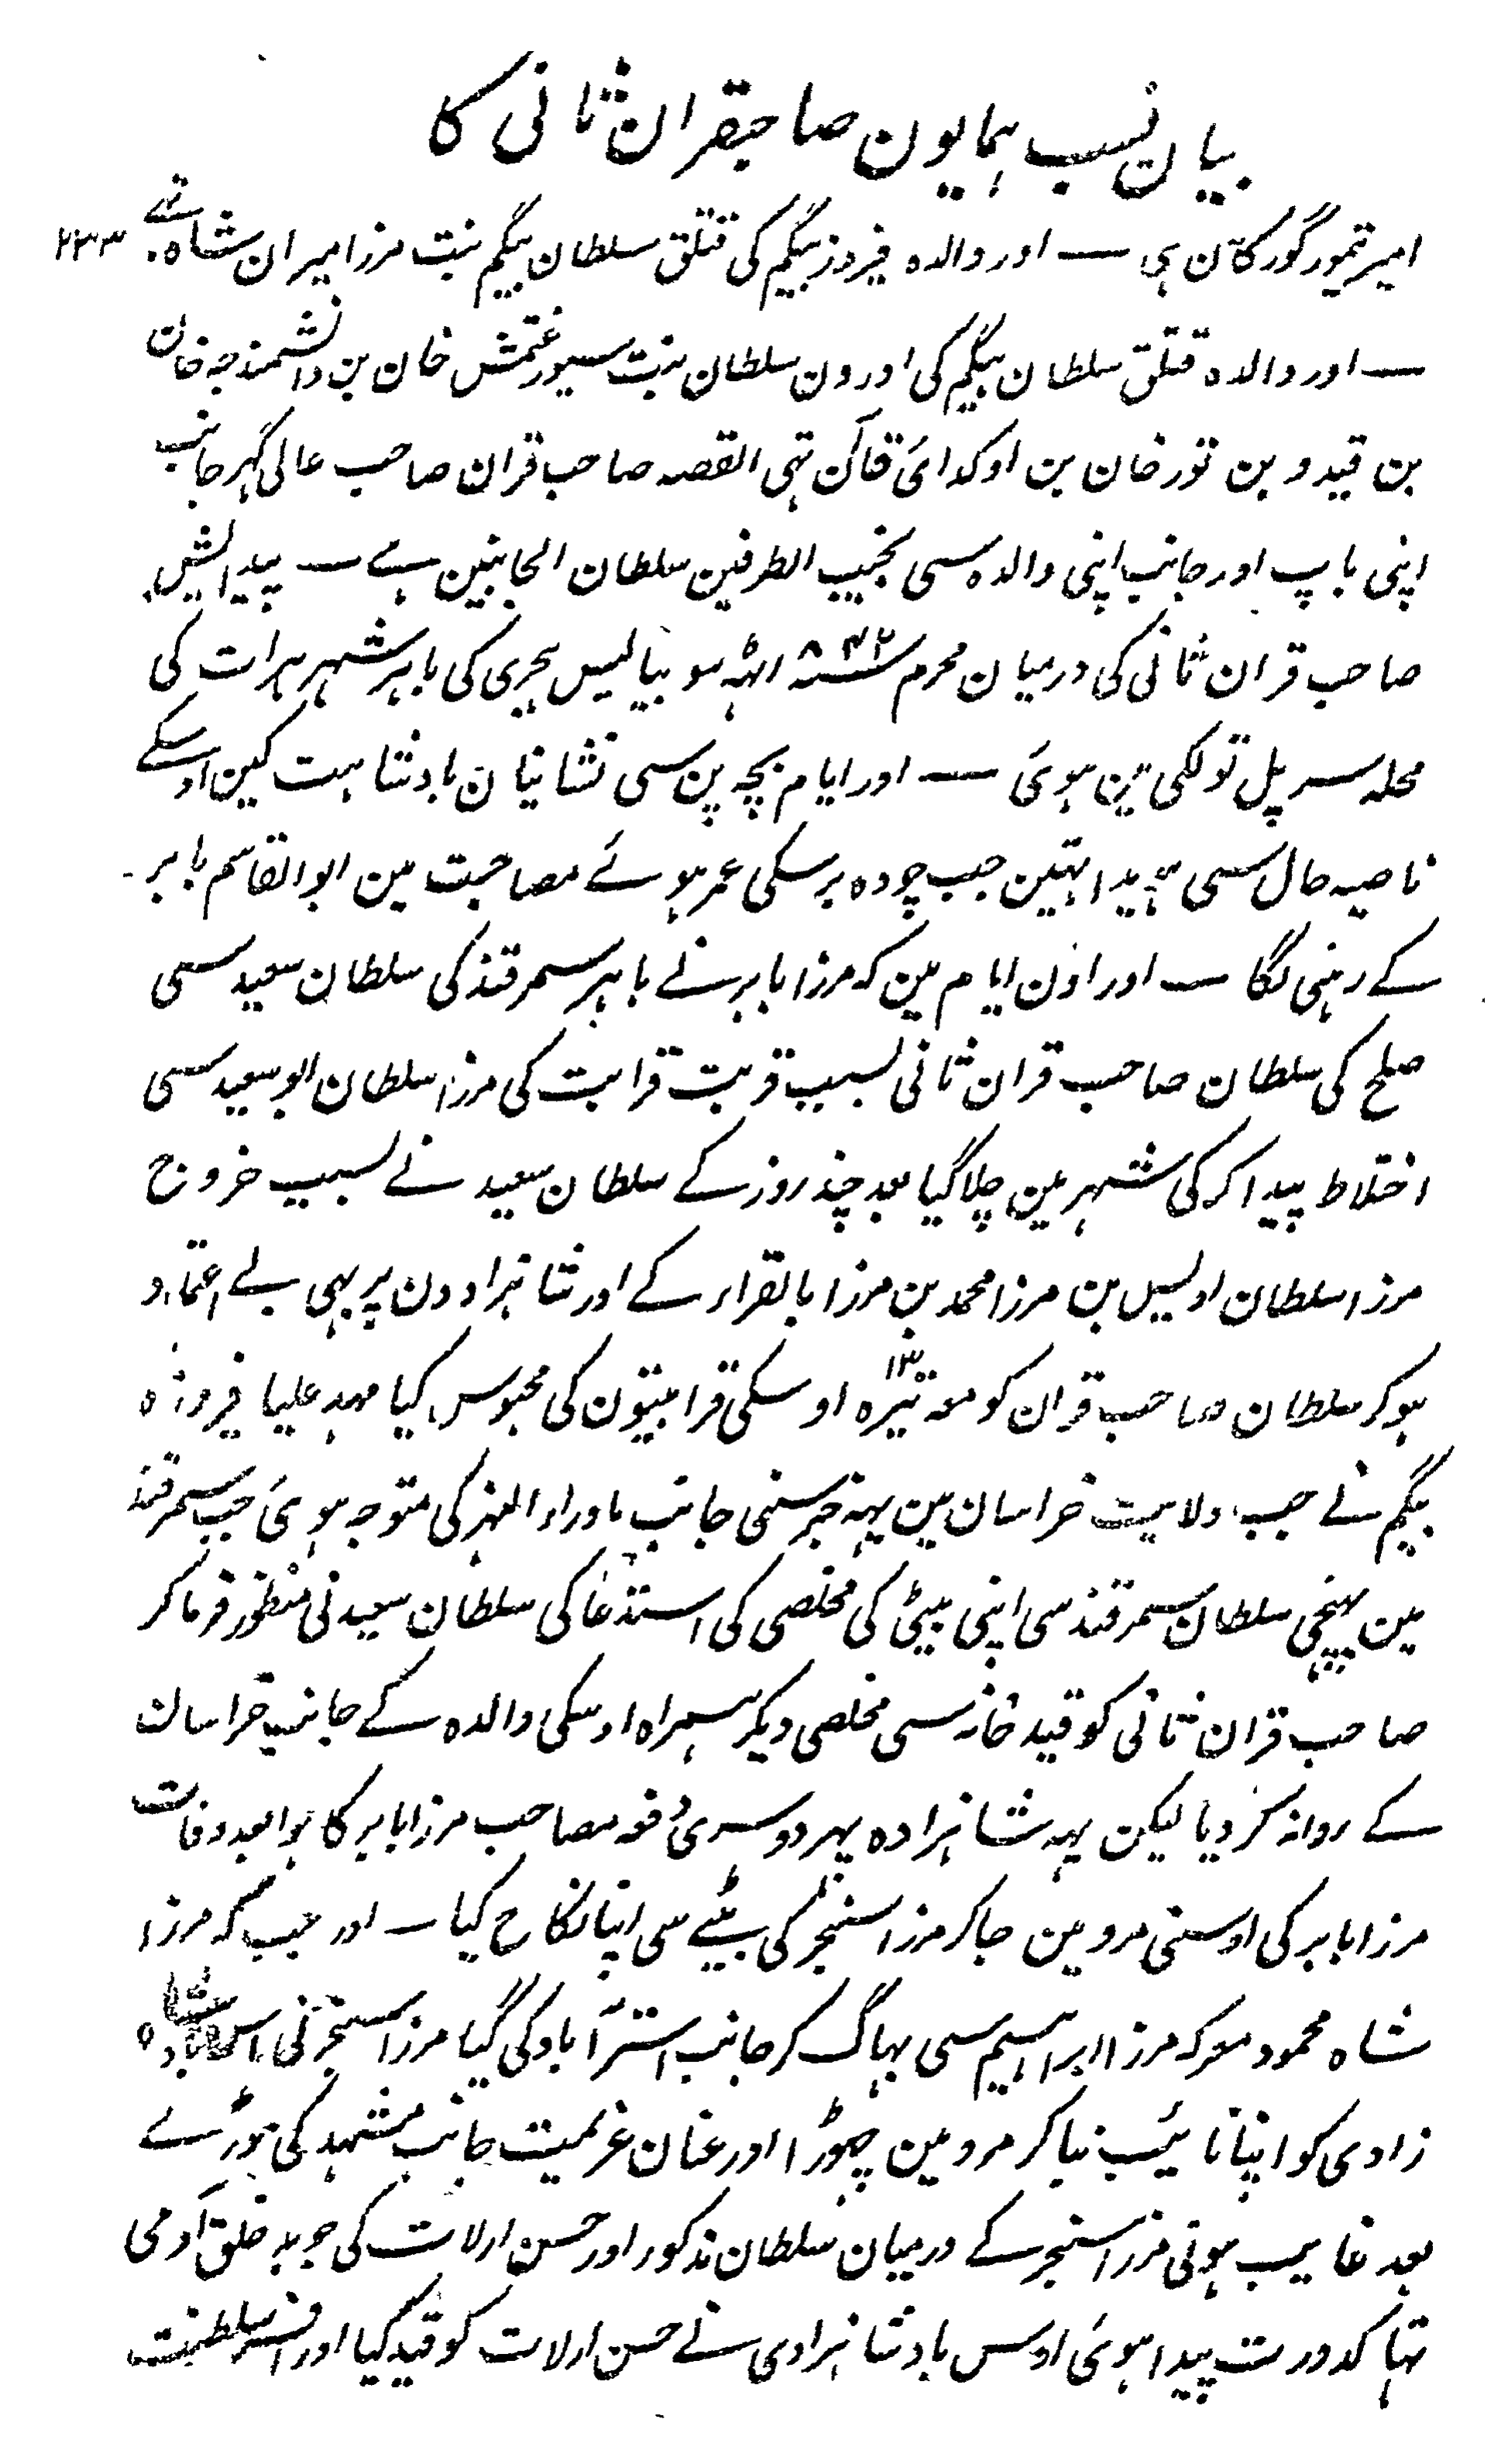 بیان نسب ہمایون صاحبقران ثانی کا
امیر تیمور گورکان ہی — اور والدہ فیروز بیگم کی قتلق سلطان بیگم بنت مرزا میران شاہ تہے ۲۳۳
— اور والدہ قتلق سلطان بیگم کی اورون سلطان بنت سیورغتمش خان بن دانشمندجہ خان
بن قیدو بن تور خان بن اوکدائی قاآن تہی القصہ صاحب قران صاحب عالی گہر جانب
اپنی باپ اور جانب اپنی والدہ سی نجیب الطرفین سلطان الجانبین ہے — پیدایش
صاحب قران ثانی کی درمیان محرم سنہ ۸۴۲ اٹہہ سو بیالیس ہجری کی باہر شہر ہرات کی
محلہ سر پل تولکی مین ہوئی — اور ایام بچہ پن سی نشانیان بادشاہت کین اوسکے
ناصیہ حال سی ہویدا تہین جب چودہ برسکی عمر ہوئے مصاحبت مین ابوالقاسم بابر
کے رہنی لگا — اور اون ایام مین کہ مرزا بابر نے باہر سمرقند کی سلطان سعید سی
صلح کی سلطان صاحب قران ثانی بسبب قربت قرابت کی مرزا سلطان ابو سعید سی
اختلاط پیدا کر کی شہر مین چلا گیا بعد چند روز کے سلطان سعید نے بسبب خروج
مرزا سلطان اویس بن مرزا محمد بن مرزا بایقراء کے اور شاہزادون پر بہی بے اعتماد
ہو کر سلطان صاحب قران کو معہ تیرہ ۱۳ اوسکی قرابتیون کی محبوس کیا مہد علیا فیروزہ
بیگم نے جب ولایت خراسان مین یہہ خبر سنی جانب ماوراء النہر کی متوجہ ہوئی جب سمرقند
مین پہنچی سلطان سمرقند سی اپنی بیٹی کی مخلصی کی استدعا کی سلطان سعید نی منظور فرما کر
صاحب قران ثانی کو قید خانہ سی مخلصی دیکر ہمراہ اوسکی والدہ کے جانب خراسان
کے روانہ کر دیا لیکن یہہ شاہزادہ پہر دوسری دفعہ مصاحب مرزا بابر کا ہوا بعد وفات
مرزا بابر کی اوسنی مرو مین جا کر مرزا سنجر کی بیٹے سی اپنا نکاح کیا — اور جب کہ مرزا
شاہ محمود معرکہ مرزا ابراہیم سی بہاگ کر جانب استرآباد کی گیا مرزا سنجر نی اس
زادی کو اپنا نائیب بنا کر مرو مین چہوڑا اور عنان عزیمت جانب مشہد کی موڑے
بعد غایب ہونی مرزا سنجر کے درمیان سلطان مذکور اور حسن ارلات کی جو بد خلق آدمی
تہا کدورت پیدا ہوئی اوس بادشاہزادی نے حسن ارلات کو قید کیا اور افسر سلطنت